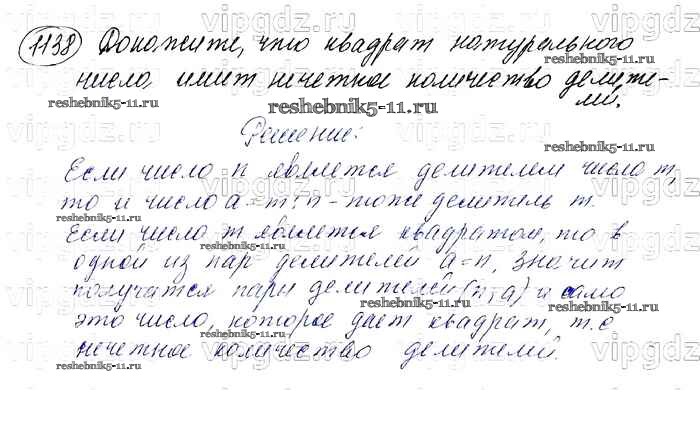 1138 Докажите, что квадрат натурального
числа, имеет нечетное количество делите-
лей.
Решение:
Если число n является делителем числа m,
то и число a = m : n - тоже делитель m.
Если число m является квадратом, то в
одной из пар делителей a = n, значит
получатся пары делителей (n и a) и само
это число, которое дает квадрат, т.е
нечетное количество делителей.
vipgdz.ru
reshebnik5-11.ru